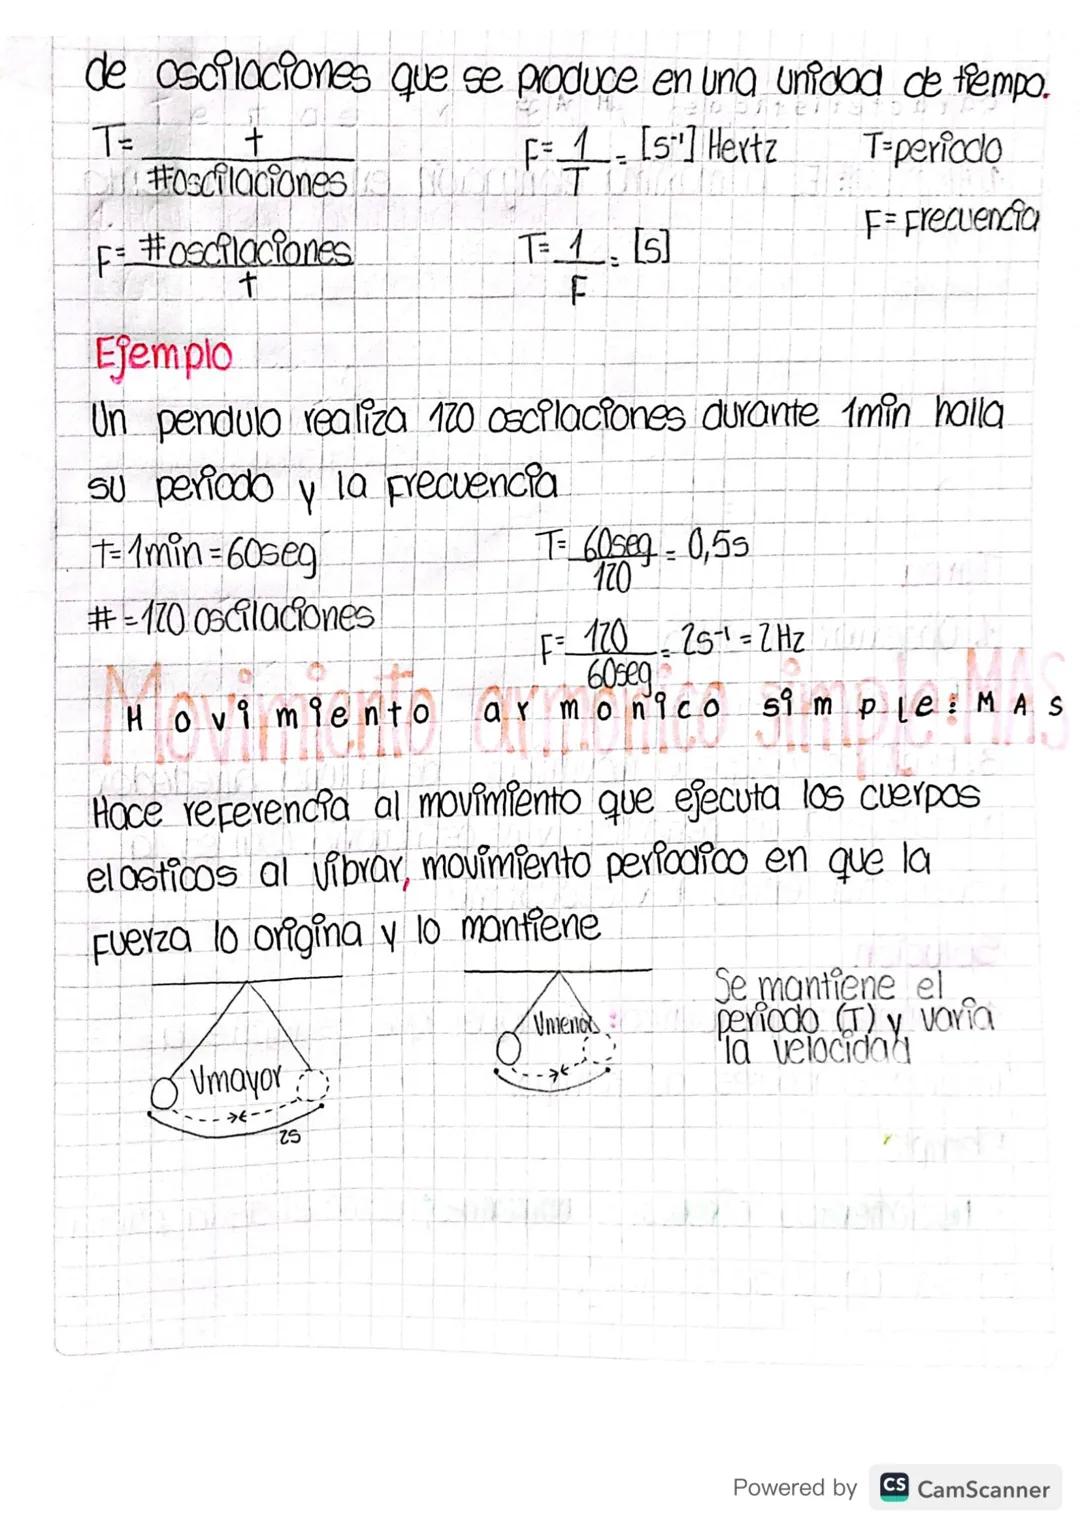 de oscilaciones que se produce en una unidad de tiempo.
T= t / #oscilaciones
F= 1/T = [s⁻¹] Hertz
T=periodo
F= #oscilaciones / t
T= 1/F = [s]
F= Frecuencia
Ejemplo
Un pendulo realiza 120 oscilaciones durante 1min halla
su periodo y la frecuencia
t=1min=60seg
T= 60seg/120 = 0,5s
#=120 oscilaciones
F= 120/60seg = 2s⁻¹ = 2Hz
Movimiento armonico simple: MAS
Hace referencia al movimiento que ejecuta los cuerpos
elasticos al vibrar, movimiento periodico en que la
fuerza lo origina y lo mantiene
Vmayor
2s
Vmenor
Se mantiene el
periodo (T) y varia
la velocidad
Powered by CS CamScanner